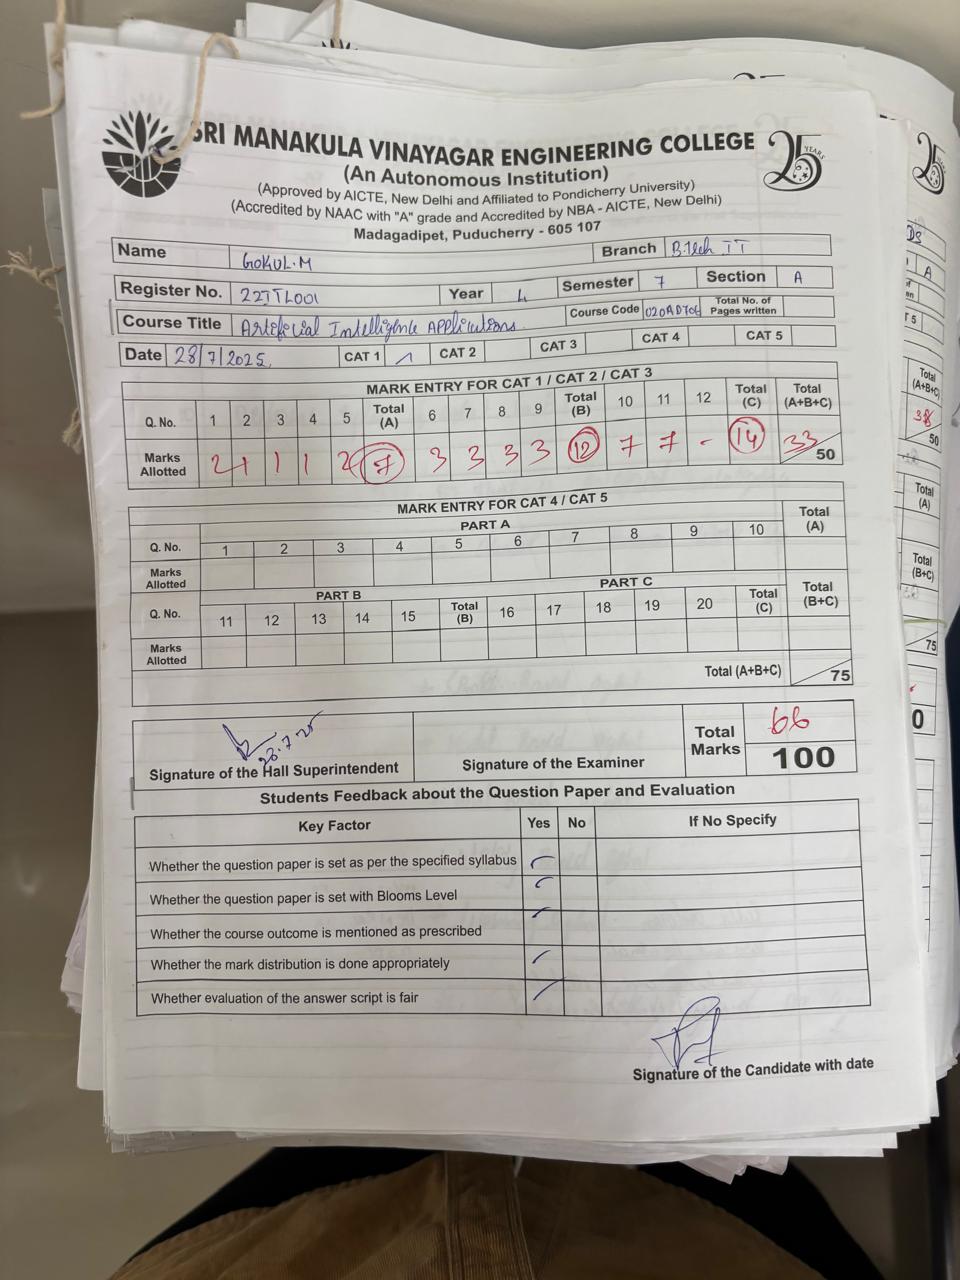 SRI MANAKULA VINAYAGAR ENGINEERING COLLEGE
(An Autonomous Institution)
(Approved by AICTE, New Delhi and Affiliated to Pondicherry University)
(Accredited by NAAC with "A" grade and Accredited by NBA - AICTE, New Delhi)
Madagadipet, Puducherry - 605 107
25 YEARS
Name GOKUL.M Branch B.Tech IT
Register No. 22TTL001 Year 4 Semester 7 Section A
Course Title Artificial Intelligence Applications Course Code Total No. of Pages written
Date 28/7/2025 CAT 1 CAT 2 CAT 3 CAT 4 CAT 5
MARK ENTRY FOR CAT 1 / CAT 2 / CAT 3
Q. No. 1 2 3 4 5 Total (A) 6 7 8 9 Total (B) 10 11 12 Total (C) Total (A+B+C)
Marks Allotted 2 1 1 1 2 7 3 3 3 3 12 7 7 - 14 33 50
MARK ENTRY FOR CAT 4 / CAT 5
PART A
Q. No. 1 2 3 4 5 6 7 8 9 10 Total (A)
Marks Allotted
PART B PART C
Q. No. 11 12 13 14 15 Total (B) 16 17 18 19 20 Total (C) Total (B+C)
Marks Allotted
Total (A+B+C) 75
28.7.25
Signature of the Hall Superintendent Signature of the Examiner Total Marks 66 100
Students Feedback about the Question Paper and Evaluation
Key Factor Yes No If No Specify
Whether the question paper is set as per the specified syllabus
Whether the question paper is set with Blooms Level
Whether the course outcome is mentioned as prescribed
Whether the mark distribution is done appropriately
Whether evaluation of the answer script is fair
Signature of the Candidate with date
25
DS
A
T 5
Total (A+B+C)
38 50
Total (A)
Total (B+C)
75
0